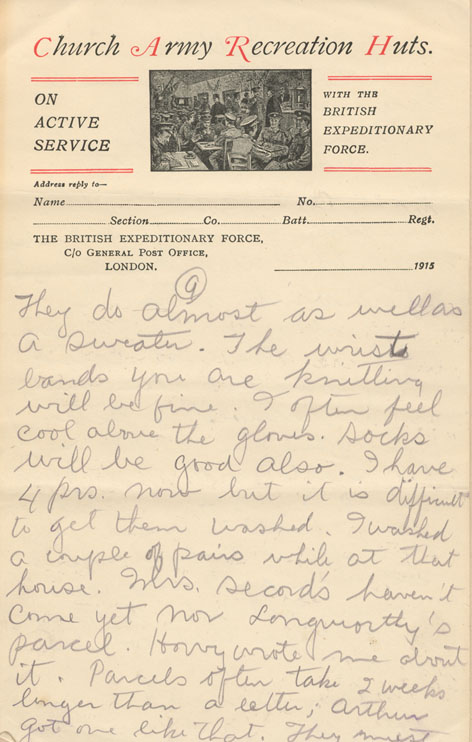 Church Army Recreation Huts.
ON
ACTIVE
SERVICE
WITH THE
BRITISH
EXPEDITIONARY
FORCE.
Address reply to—
Name No.
Section Co. Batt. Regt.
THE BRITISH EXPEDITIONARY FORCE,
C/o GENERAL POST OFFICE,
LONDON.
1915
9
They do almost as well as
a sweater. The wrist
bands you are knitting
will be fine. I often feel
cool above the gloves. Socks
will be good also. I have
4 prs. now but it is difficult
to get them washed. I washed
a couple of pairs while at that
house. Mrs. Secord's haven't
come yet nor Longworthy's
parcel. Howy wrote me about
it. Parcels often take 2 weeks
longer than a letter, Arthur
got one like that. They must